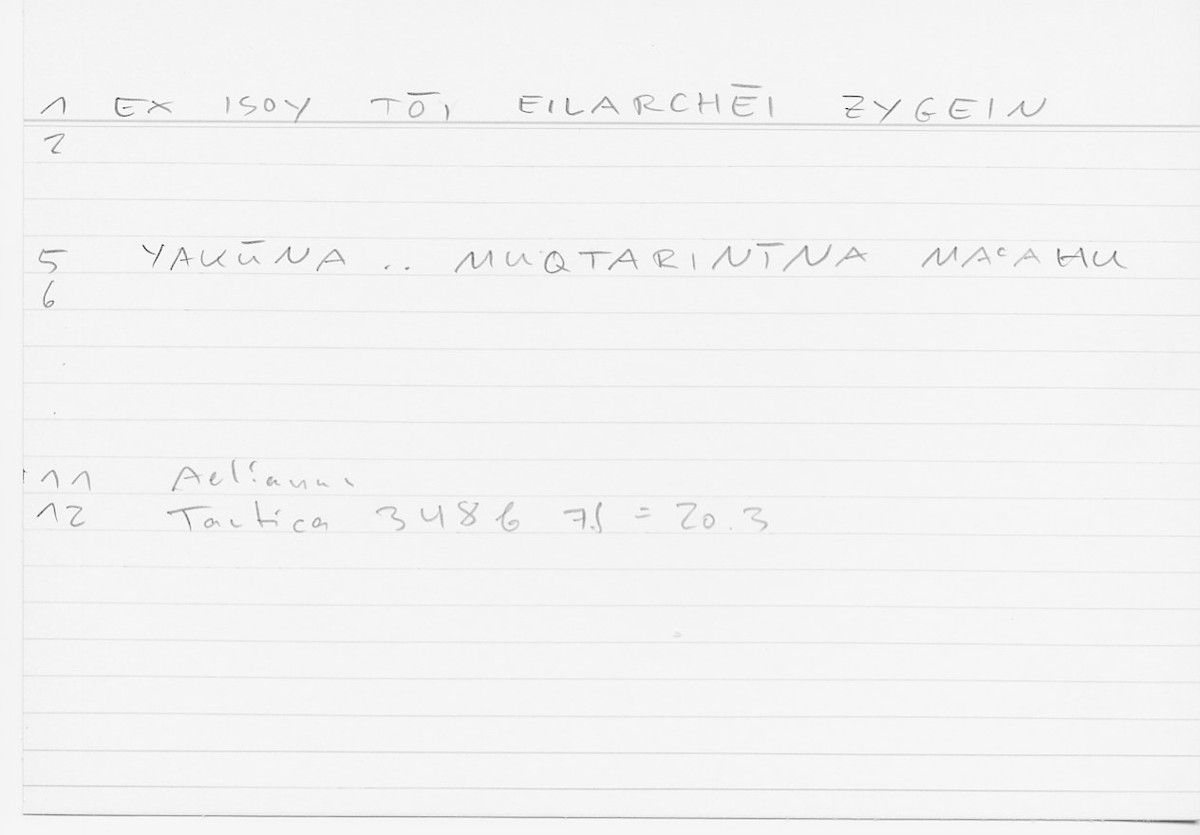 1 EX ISOY TŌI EILARCHĒI ZYGEIN
2
5 YAKŪNA .. MUQTARINĪNA MAʿAHU
6
11 Aelianus
12 Tactica 348 6 7f = 20.3